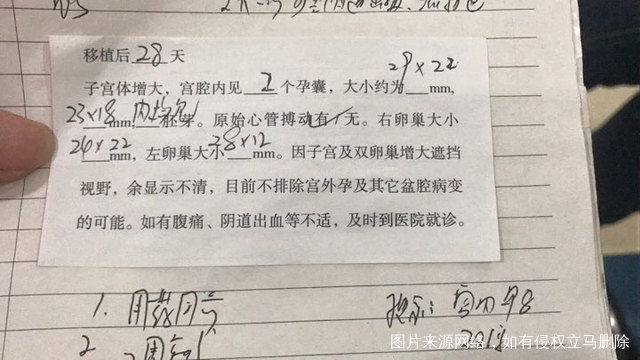 移植后 28 天
29×22
子宫体增大，宫腔内见 2 个孕囊，大小约为 mm,
23×18 mm, 内均见 胚芽。原始心管搏动有/无。右卵巢大小
26×22 mm，左卵巢大小 28×12 mm。因子宫及双卵巢增大遮挡
视野，余显示不清，目前不排除宫外孕及其它盆腔病变
的可能。如有腹痛、阴道出血等不适，及时到医院就诊。
1. 用药同前
提示：宫内早孕
2
图片来源网络，如有侵权立马删除